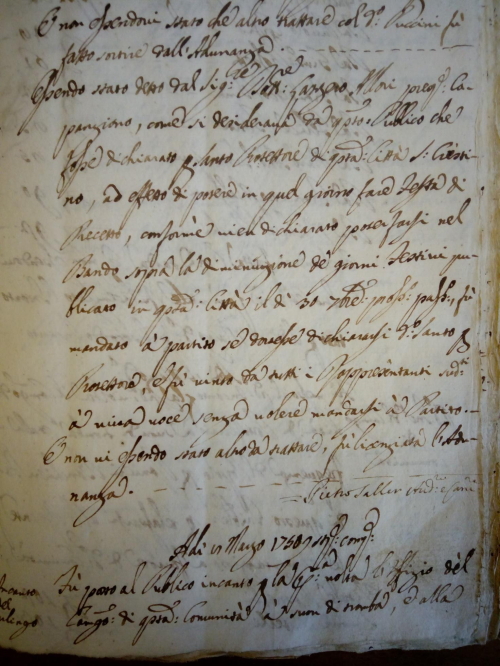 E non essendovi stato che altro trattare col d.º Puccini fù
fatto sortire dall'Adunanza
Essendo stato detto dal Sig.re Dott.re Lazzero Mori
come si desiderava da qsto Publico che
fosse dichiarato p Santo Protettore di qsta: Città S: Cresti-
no, ad effetto di potere in quel giorno fare Festa di
Precetto, conforme vien dichiarato potersi farsi nel
Bando sopra la diminuzione de giorni Festivi pu-
blicato in qsta: Città il dì 30. 7bre: pross: pass:, fù
mandato à partito se dovesse dichiararsi d.º Santo p
Protettore, e fù vinto da tutti i Rappresentanti sud.ti
à viva voce senza volere mandarsi à Partito. -
E non vi essendo stato altro da trattare, fù licenziata l'Adu-
nanza.
Pietro
Adi 17 Marzo 1750
Fù posto al Publico incanto p la volta l'Offizio del
di qsta: Comunità à suon di tromba, e alla
Incanto
del